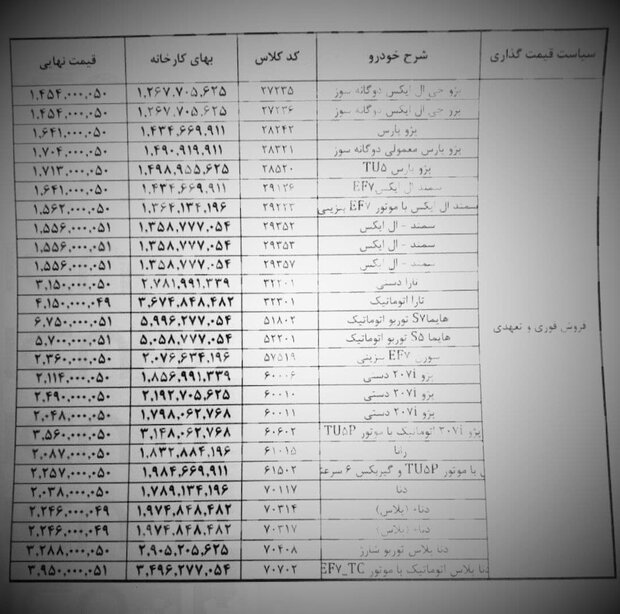 سیاست قیمت گذاری شرح خودرو کد کلاس بهای کارخانه قیمت نهایی
فروش فوری و تعهدی
پژو جی ال ایکس دوگانه سوز ۲۷۲۳۵ ۱,۲۶۷,۷۰۵,۶۲۵ ۱,۴۵۴,۰۰۰,۰۵۰
پژو جی ال ایکس دوگانه سوز ۲۷۲۳۶ ۱,۲۶۷,۷۰۵,۶۲۵ ۱,۴۵۴,۰۰۰,۰۵۰
پژو پارس ۲۸۲۴۲ ۱,۴۳۴,۶۶۹,۹۱۱ ۱,۶۴۱,۰۰۰,۰۵۰
پژو پارس معمولی دوگانه سوز ۲۸۳۲۱ ۱,۴۹۰,۹۱۹,۹۱۱ ۱,۷۰۴,۰۰۰,۰۵۰
پژو پارس TU۵ ۲۸۵۲۰ ۱,۴۹۸,۹۵۵,۶۲۵ ۱,۷۱۳,۰۰۰,۰۵۰
سمند ال ایکس EF۷ ۲۹۱۳۶ ۱,۴۳۴,۶۶۹,۹۱۱ ۱,۶۴۱,۰۰۰,۰۵۰
سمند ال ایکس با موتور EF۷ بنزینی ۲۹۲۲۳ ۱,۳۶۴,۱۳۴,۱۹۶ ۱,۵۶۲,۰۰۰,۰۵۰
سمند - ال ایکس ۲۹۳۵۲ ۱,۳۵۸,۷۷۷,۰۵۴ ۱,۵۵۶,۰۰۰,۰۵۱
سمند - ال ایکس ۲۹۳۵۳ ۱,۳۵۸,۷۷۷,۰۵۴ ۱,۵۵۶,۰۰۰,۰۵۱
سمند - ال ایکس ۲۹۳۵۷ ۱,۳۵۸,۷۷۷,۰۵۴ ۱,۵۵۶,۰۰۰,۰۵۱
تارا دستی ۳۲۲۰۱ ۲,۷۸۱,۹۹۱,۳۳۹ ۳,۱۵۰,۰۰۰,۰۵۰
تارا اتوماتیک ۳۲۳۰۱ ۳,۶۷۴,۸۴۸,۴۸۲ ۴,۱۵۰,۰۰۰,۰۴۹
هایما S۷ توربو اتوماتیک ۵۱۸۰۲ ۵,۹۹۶,۲۷۷,۰۵۴ ۶,۷۵۰,۰۰۰,۰۵۱
هایما S۵ توربو اتوماتیک ۵۲۲۰۱ ۵,۰۵۸,۷۷۷,۰۵۴ ۵,۷۰۰,۰۰۰,۰۵۱
سورن EF۷ بنزینی ۵۷۵۱۹ ۲,۰۷۶,۶۳۴,۱۹۶ ۲,۳۶۰,۰۰۰,۰۵۰
پژو ۲۰۷i دستی ۶۰۰۰۶ ۱,۸۵۶,۹۹۱,۳۳۹ ۲,۱۱۴,۰۰۰,۰۵۰
پژو ۲۰۷i دستی ۶۰۰۱۰ ۲,۱۹۲,۷۰۵,۶۲۵ ۲,۴۹۰,۰۰۰,۰۵۰
پژو ۲۰۷i دستی ۶۰۰۱۱ ۱,۷۹۸,۰۶۲,۷۶۸ ۲,۰۴۸,۰۰۰,۰۵۰
پژو ۲۰۷i اتوماتیک با موتور TU۵P ۶۰۶۰۲ ۳,۱۴۸,۰۶۲,۷۶۸ ۳,۵۶۰,۰۰۰,۰۵۰
رانا ۶۱۰۱۵ ۱,۸۳۲,۸۸۴,۱۹۶ ۲,۰۸۷,۰۰۰,۰۵۰
با موتور TU۵P و گیربکس ۶ سرعته ۶۱۵۰۲ ۱,۹۸۴,۶۶۹,۹۱۱ ۲,۲۵۷,۰۰۰,۰۵۰
دنا ۷۰۱۱۷ ۱,۷۸۹,۱۳۴,۱۹۶ ۲,۰۳۸,۰۰۰,۰۵۰
دنا+ (پلاس) ۷۰۳۱۴ ۱,۹۷۴,۸۴۸,۴۸۲ ۲,۲۴۶,۰۰۰,۰۴۹
دنا+ (پلاس) ۷۰۳۱۷ ۱,۹۷۴,۸۴۸,۴۸۲ ۲,۲۴۶,۰۰۰,۰۴۹
دنا پلاس توربو شارژ ۷۰۴۰۸ ۲,۹۰۵,۲۰۵,۶۲۵ ۳,۲۸۸,۰۰۰,۰۵۰
دنا پلاس اتوماتیک با موتور EF۷_TC ۷۰۷۰۲ ۳,۴۹۶,۲۷۷,۰۵۴ ۳,۹۵۰,۰۰۰,۰۵۱